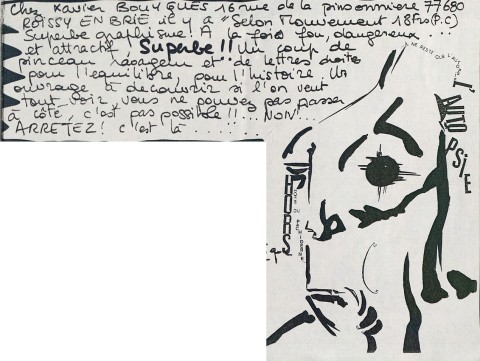 Chez Xavier BOUYGUES 16 rue de la pinsonnière 77680
ROISSY EN BRIE il y a "Selon Mouvement 18Frs (P.C)
Superbe graphisme! A la fois fou, dangereux ...
et attractif, Superbe!! Un coup de
pinceau rasageur et de lettres droites
pour l'équilibre, pour l'histoire. Un
ouvrage à découvrir si l'on veut
tout voir, vous ne pouvez pas passer
à côté, c'est pas possible!!... NON!...
ARRETEZ! c'est là ........
NE RESTE QUE
L'AUTOPSIE
HORS